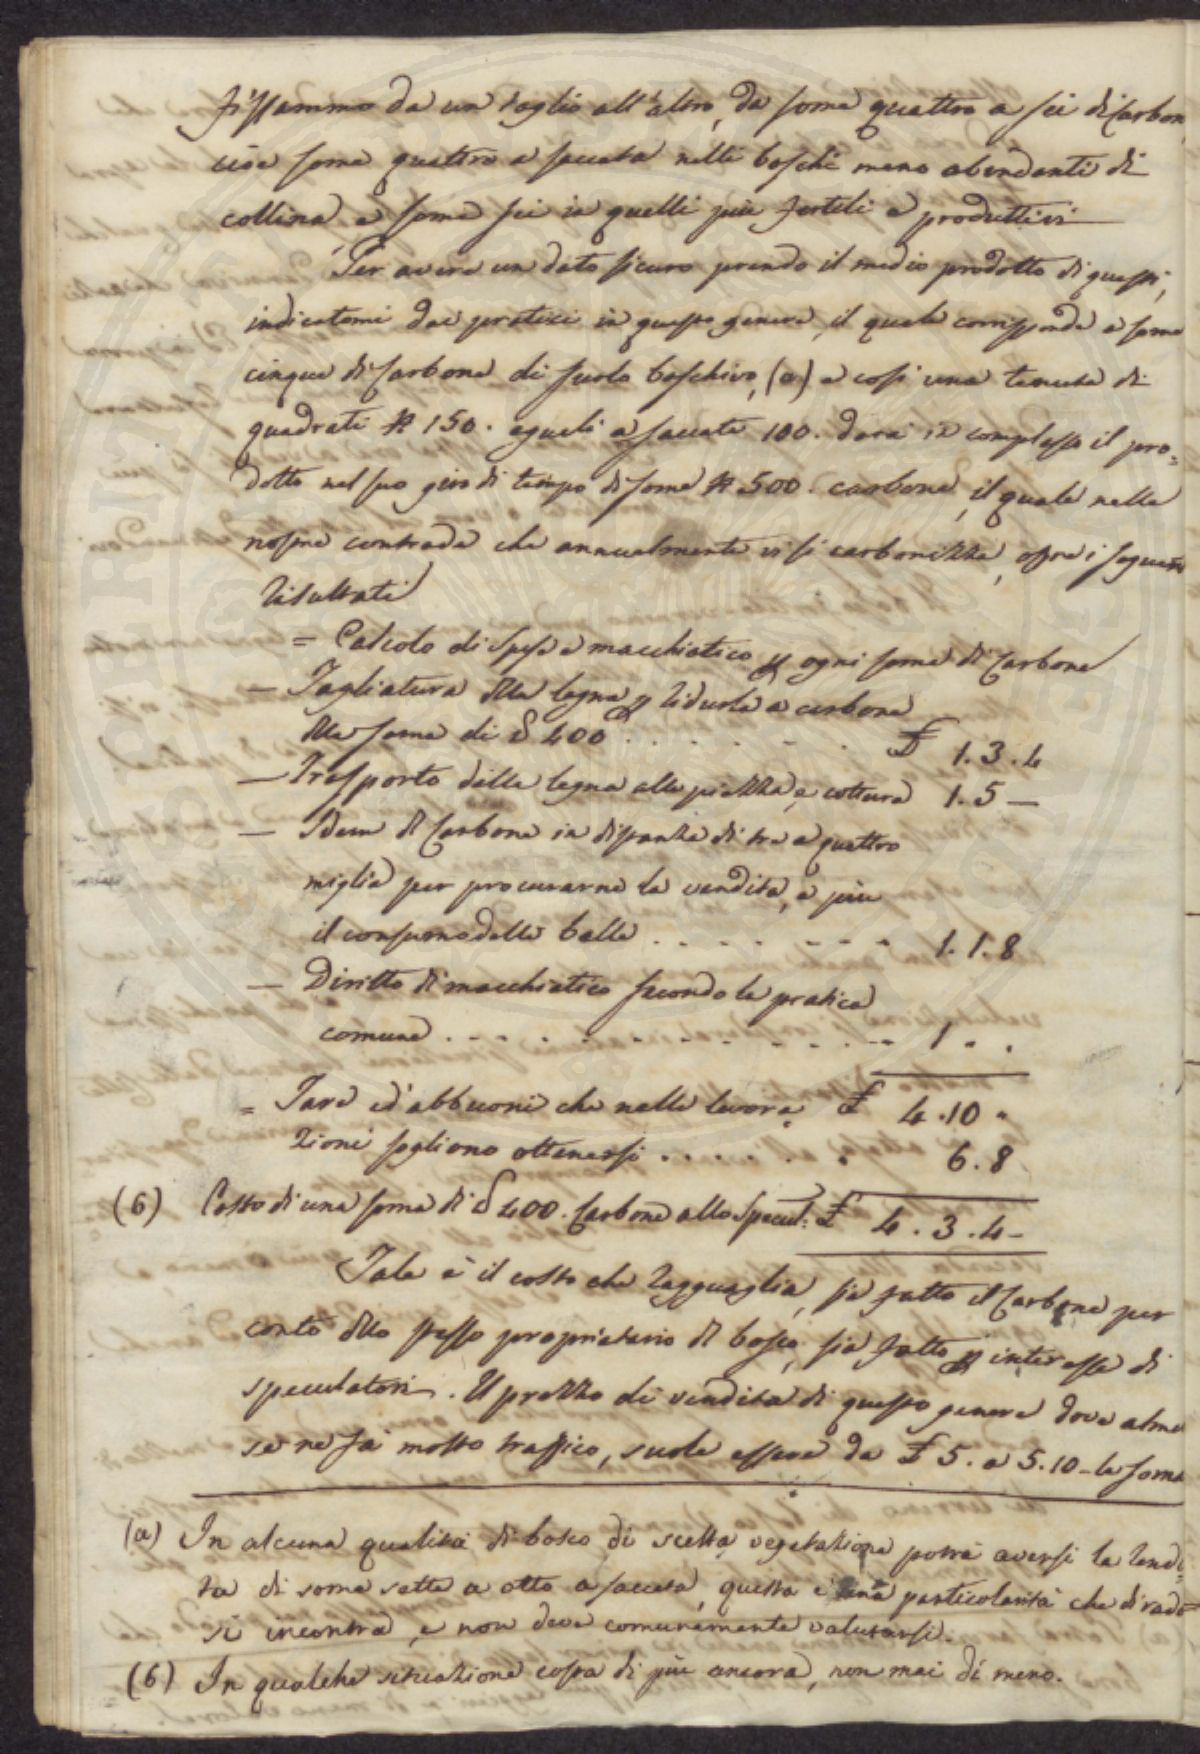 fissammo da un taglio all'altro, da some quattro a sei di Carbon
cioè some quattro a saccata nelli boschi meno abondanti di
collina, e some sei in quelli più fertili e produttivi
Per avere un dato sicuro prendo il medio prodotto di questi,
indicatomi dai pratici in questo genere, il quale corrisponde a some
cinque di Carbone di suolo boschivo, (a) e così una tenuta di
quadrati N 150. eguali a saccate 100. darà in complesso il pro=
dotto nel suo giro di tempo di some N 500. carbone, il quale nelle
nostre contrade che annualmente vi si carbonizza, offre i seguenti
risultati
= Calcolo di spesa e macchiatico p ogni soma di Carbone
— Tagliatura della legna p ridurla a carbone
della soma di ℔ 400 . . . . . . £ 1.3.4
— Trasporto della legna alla piazza, e cottura 1.5 —
— Idem del Carbone in distanza di tre a quattro
miglia per procurarne la vendita, e più
il consumo delle balle . . . . . . . 1.1.8
— Diritto di macchiatico secondo la pratica
comune . . . . . . . . . . . 1 . .
£ 4.10 "
= Tare ed abbuoni che nelle lavora=
zioni sogliono ottenersi . . . . . . 6.8
(b) Costo di una soma di ℔ 400. Carbone allo Specul: £ 4.3.4 -
Tale è il costo che ragguaglia, sia fatto il Carbone per
conto dello stesso proprietario del bosco, sia fatto p interesse di
speculatori. Il prezzo di vendita di questo genere dove almeno
se ne fa molto traffico, suole essere da £ 5. a 5.10 - la soma
(a) In alcuna qualità di bosco di scelta vegetazione potrà aversi la rendi=
ta di some sette a otto a saccata, questa è una particolarità che di rado
si incontra, e non deve comunemente valutarsi.
(b) In qualche situazione costa di più ancora, non mai di meno.